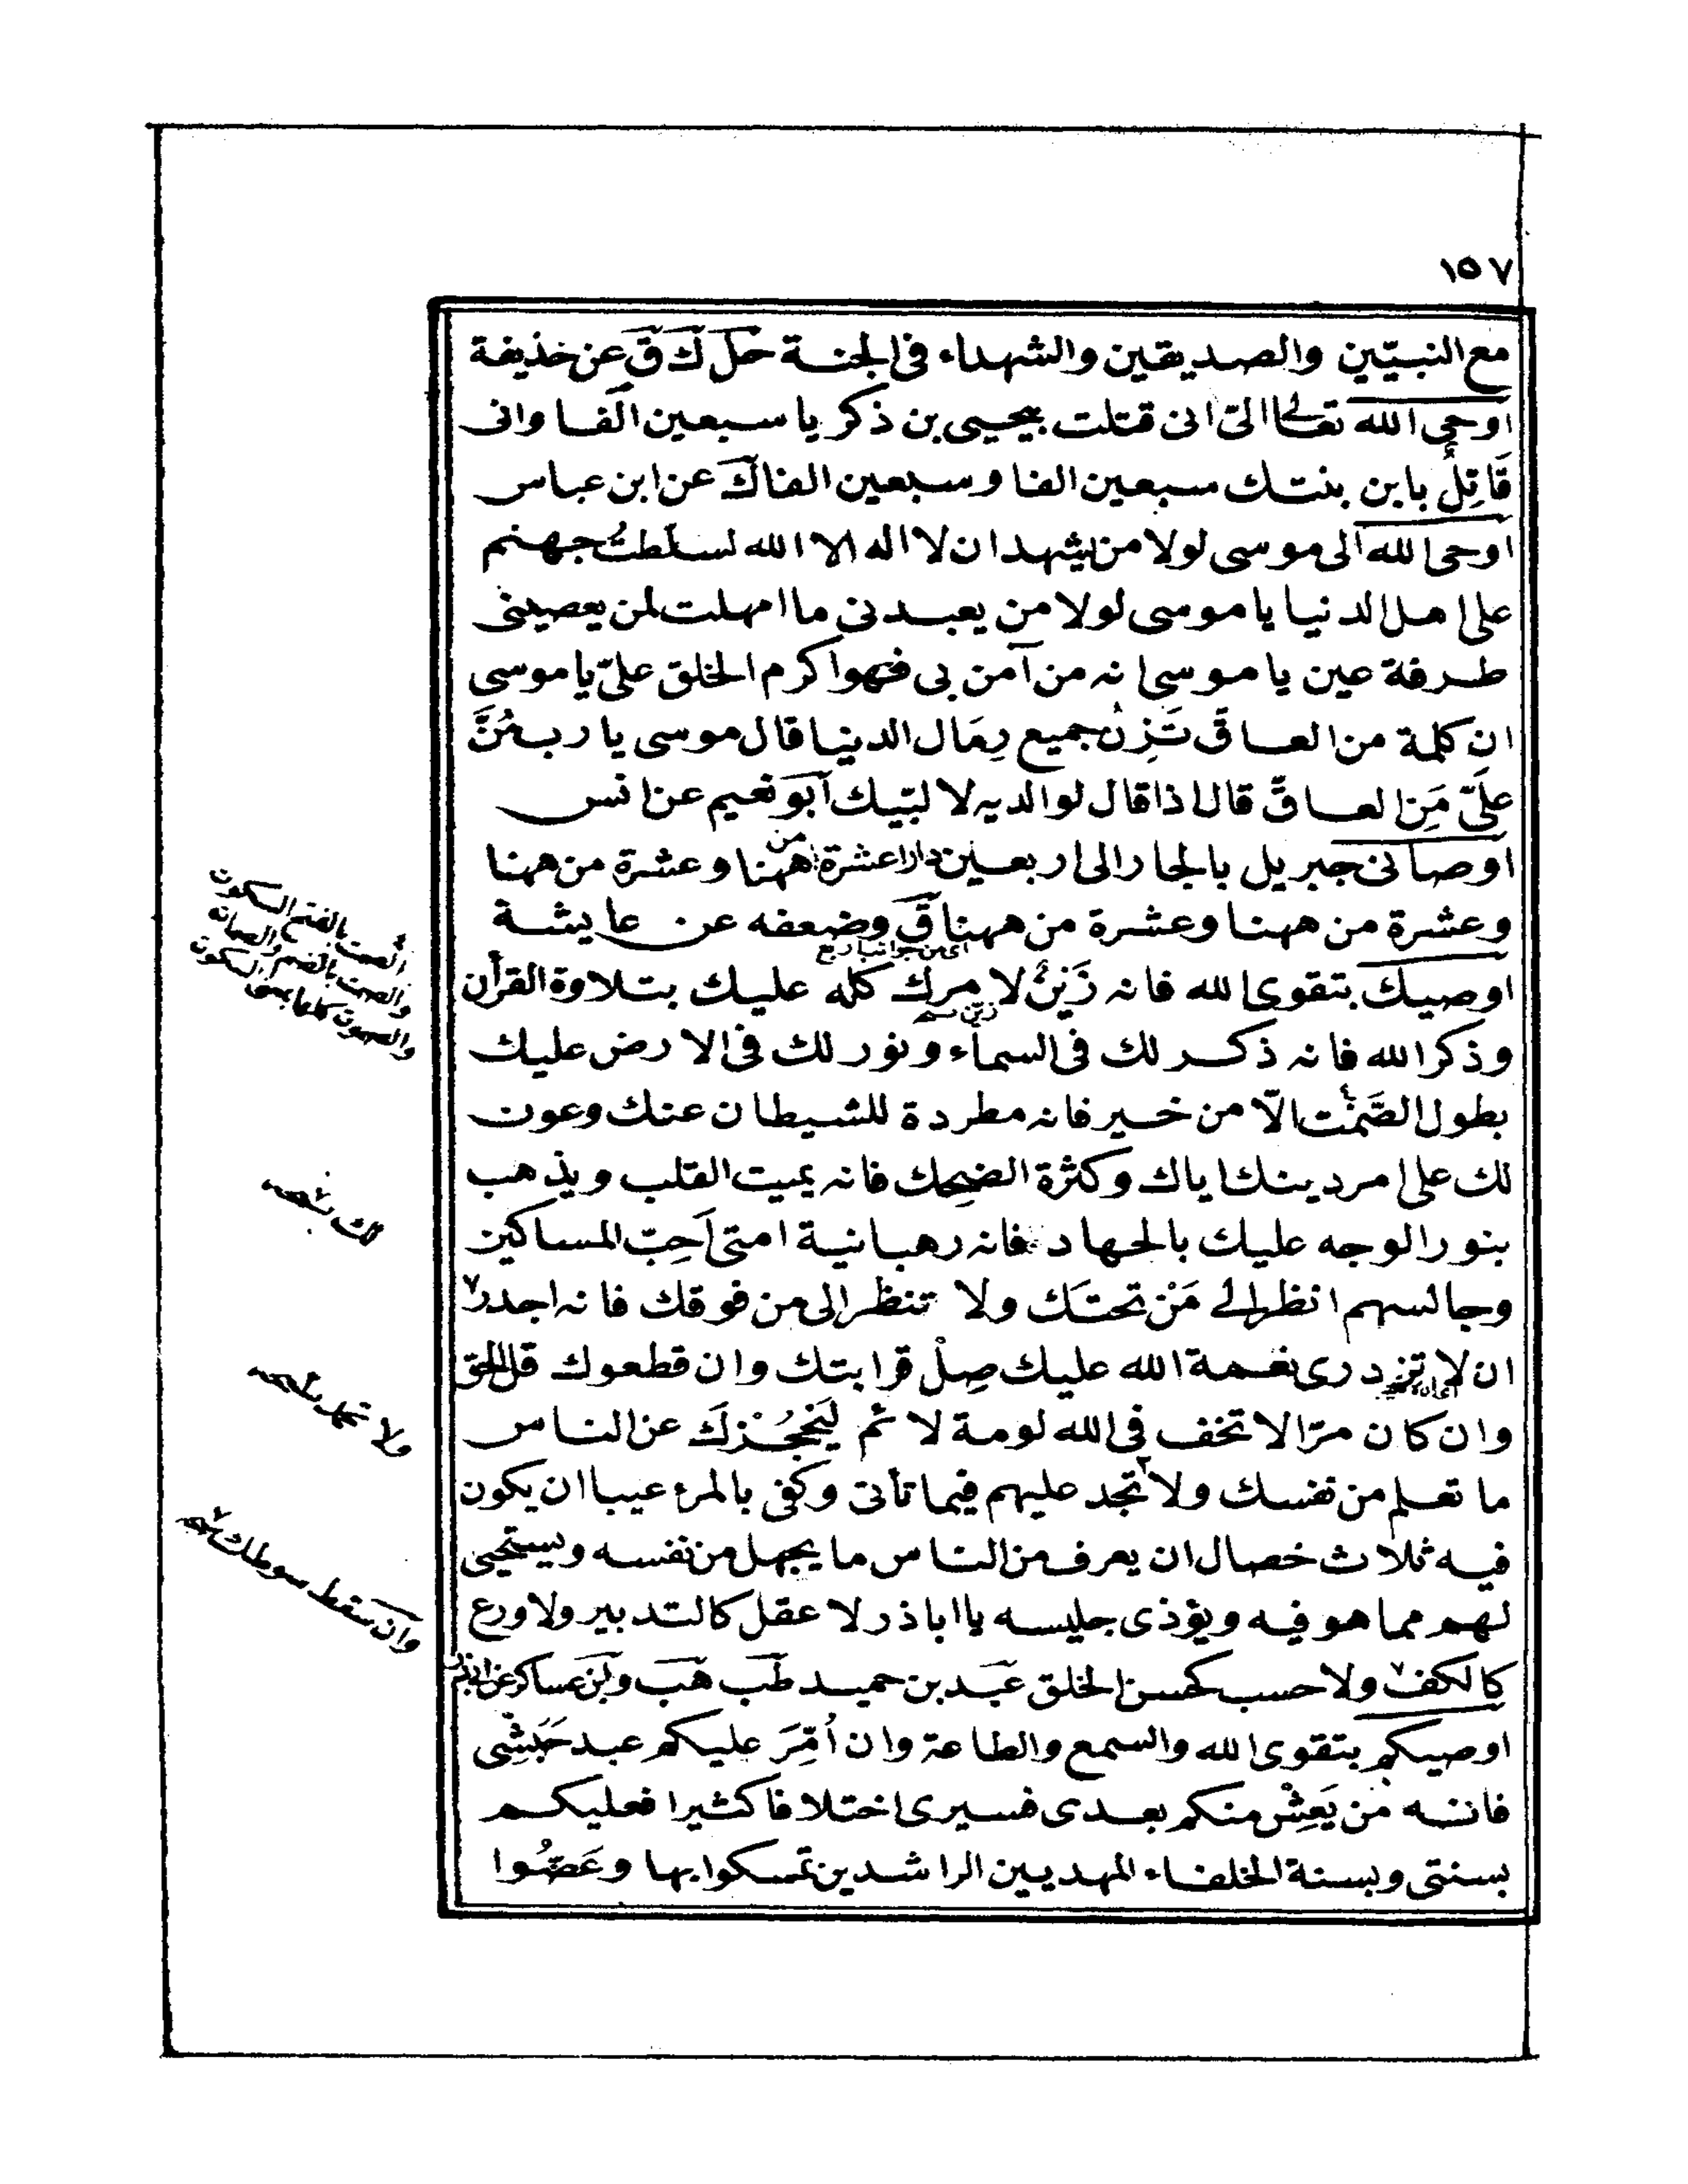 ١٥٧
مع النبيّين والصديقين والشهداء فى الجنة حل ك ق عن حذيفة
اوحى الله تعالى الىّ انى قتلت بيحيى بن ذكريا سبعين الفا وانى
قَاتِلٌ بابن بنتك سبعين الفا وسبعين الفا ك عن ابن عباس
اوحى الله الى موسى لولا من يشهد ان لا اله الا الله لسلّطتُ جهنم
على اهل الدنيا يا موسى لولا من يعبدنى ما امهلت لمن يعصينى
طرفة عين يا موسى انه من آمن بى فهو اكرم الخلق علىّ يا موسى
ان كلمة من العاق تَزِنُ جميع رِمَال الدنيا قال موسى يا رب مُنَّ
علىّ مَنِ العاقّ قال اذا قال لوالديه لا لبّيك ابو نعيم عن انس
اوصانى جبريل بالجار الى اربعين دارا عشرة من ههنا وعشرة من ههنا
وعشرة من ههنا وعشرة من ههنا ق وضعفه عن عايشة
اى من جوانب اربع
اوصيك بتقوى الله فانه زَينٌ لامرك كله عليك بتلاوة القرأن
وذكر الله فانه ذكر لك فى السماء ونور لك فى الارض عليك
بطول الصَّمْت الّا من خير فانه مطردة للشيطان عنك وعون
لك على امر دينك اياك وكثرة الضحك فانه يميت القلب ويذهب
بنور الوجه عليك بالجهاد فانه رهبانية امتى اَحِبّ المساكين
وجالسهم انظر الى مَنْ تحتَك ولا تنظر الى من فوقك فانه اجدر
ان لا تزدرى نعمة الله عليك صِلْ قرابتك وان قطعوك قل الحق
وان كان مرّا لا تخف فى الله لومة لائم لَيَحْجُزْكَ عن الناس
ما تعلم من نفسك ولا تجد عليهم فيما تأتى وكفى بالمرء عيبا ان يكون
فيه ثلاث خصال ان يعرف من الناس ما يجهل من نفسه ويستحيى
لهم مما هو فيه ويؤذى جليسه يا اباذر لا عقل كالتدبير ولا ورع
كالكف ولا حسب كحسن الخلق عبد بن حميد طب هب وابن عساكر عن ابى ذر
اوصيكم بتقوى الله والسمع والطاعة وان اُمِّرَ عليكم عبد حَبَشِى
فانه مَن يَعِشْ منكم بعدى فسيرى اختلافا كثيرا فعليكم
بسنتى وبسنة الخلفاء المهديين الراشدين تمسكوا بها وعَضُّوا
الصمت بالفتح السكوت
والصمت بالضم والصماته
والصموت كلها بمعنى السكوت
لك نسخه
وان سقط سوطك نسخه